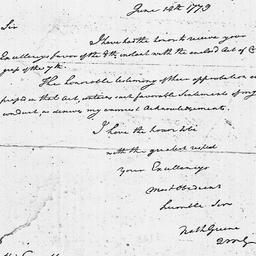 June 12th 1779
Sir
I have had the honor to receive your
Excellencys favor of the 8th instant with the enclosd Act of
gress of the 7th
The honorable testimony of there approbation
in that Act, and favorable Sentiments of my
conduct, deserves my warmest Acknowledgements.
I have the honor to be
with the greatest respect
your Excellencys
most Obedient
humble Ser
Nath Greene
QMG